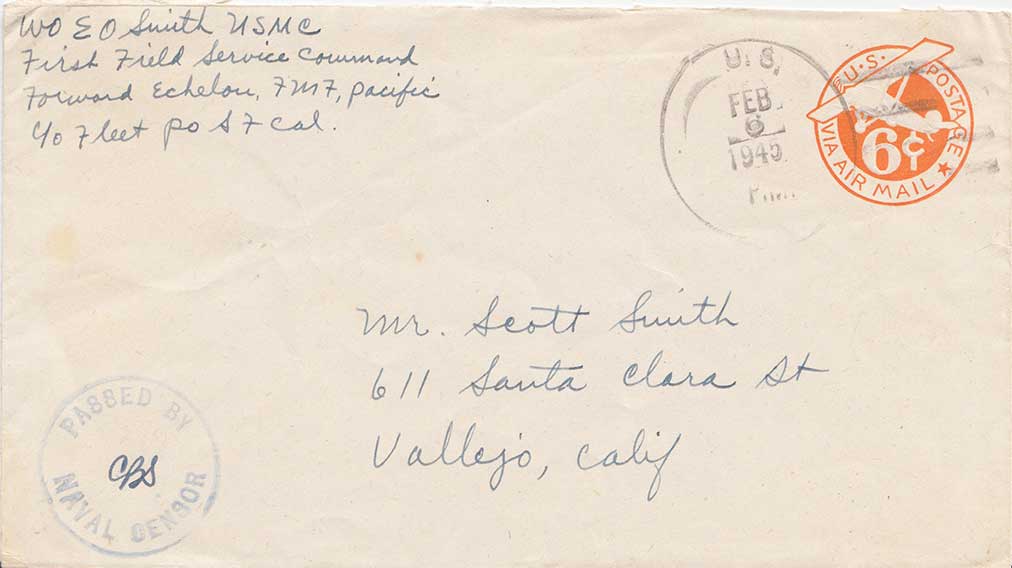 WO E O Smith USMC
First Field Service Command
Forward Echelon, FMF, Pacific
c/o Fleet PO S F Cal.
U.S.
FEB
6
1945
P.M.
U.S. POSTAGE
6¢
VIA AIR MAIL
Mr. Scott Smith
611 Santa Clara St
Vallejo, Calif
PASSED BY
CBS
NAVAL CENSOR